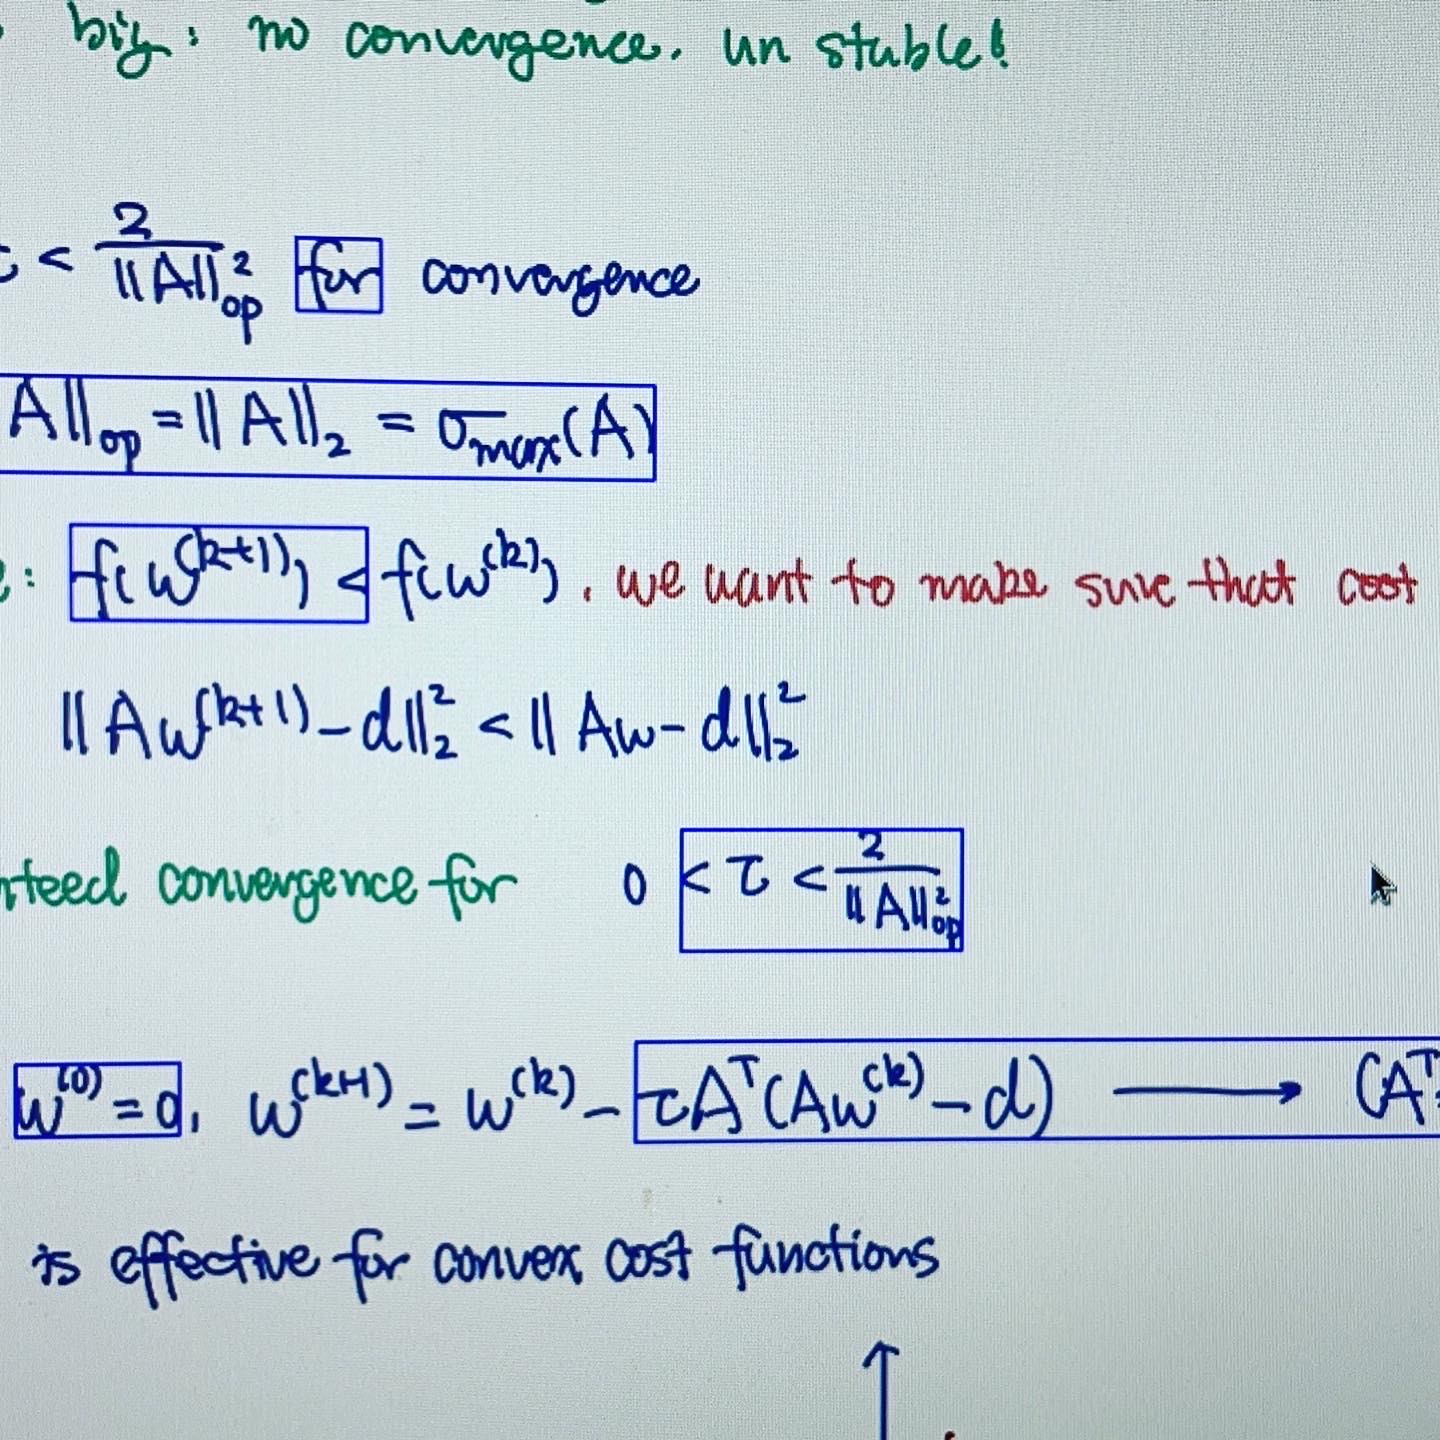 big: no convergence. un stable!
τ < 2/||A||²op for convergence
A||op = ||A||₂ = σmax(A)
: f(w^(k+1)) < f(w^(k)). we want to make sure that cost
||Aw^(k+1) - d||₂² < ||Aw - d||₂²
nteed convergence for 0 < τ < 2/||A||²op
w^(0) = 0, w^(k+1) = w^(k) - τA^T(Aw^(k) - d) → (A^T
is effective for convex cost functions